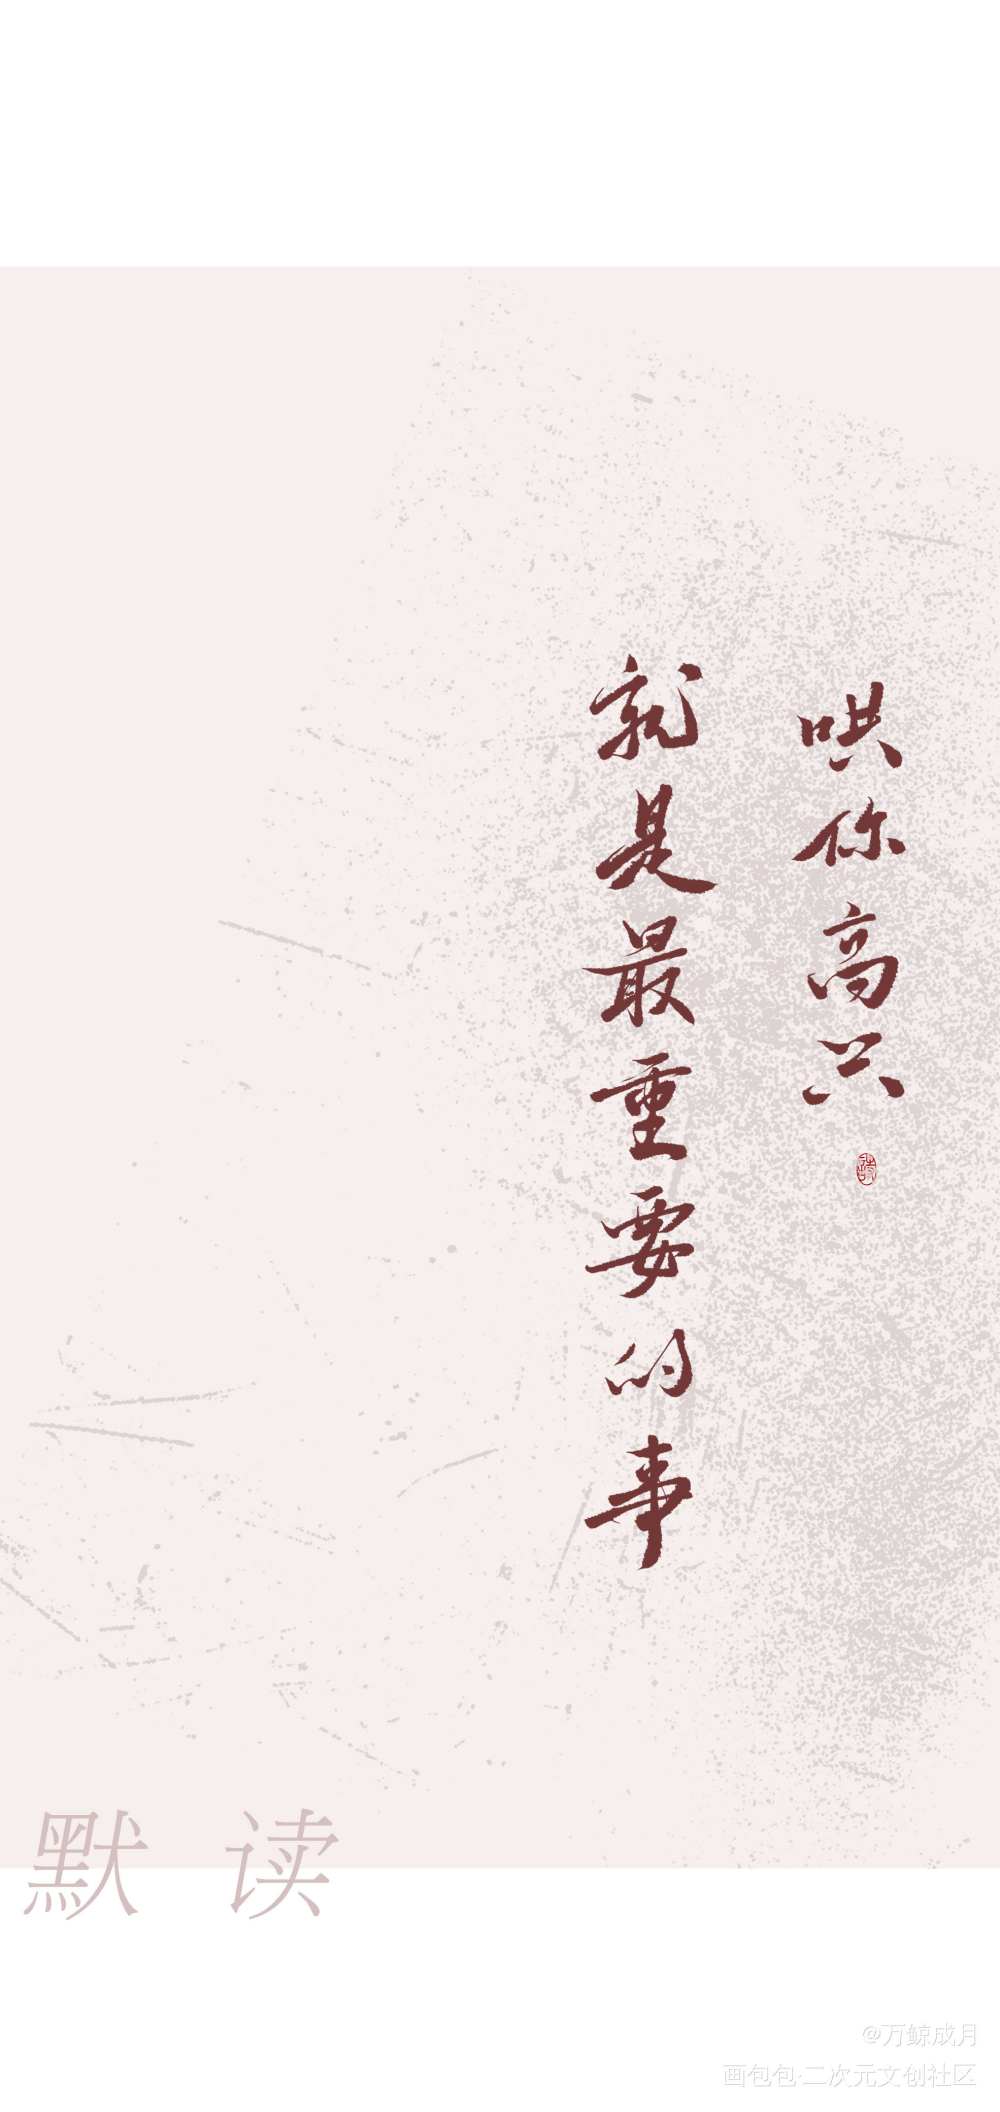 哄你高兴
就是最重要的事
默读
@万鲸成月
画包包·二次元文创社区